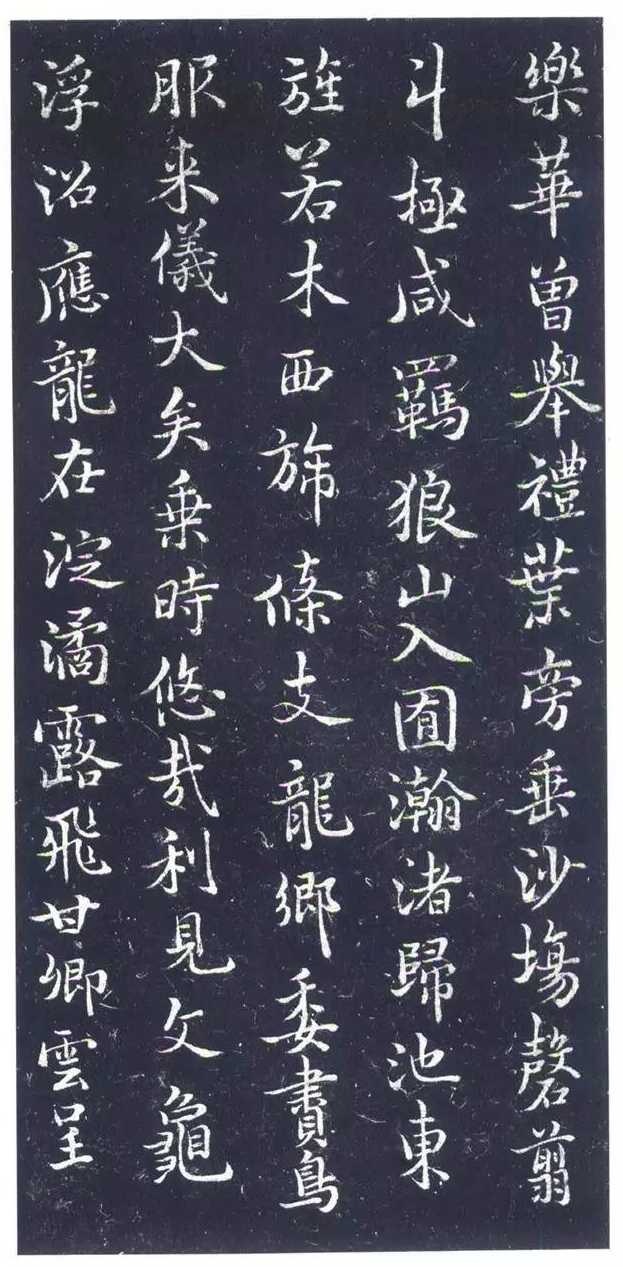 樂華曾舉禮葉旁垂沙塲磬翦
斗極咸羈狼山入囿瀚渚歸池東
旌若木西旆條支龍鄉委賮鳥
服来儀大矣乗時悠哉利見文龜
浮洛應龍在淀潏露飛甘卿雲呈